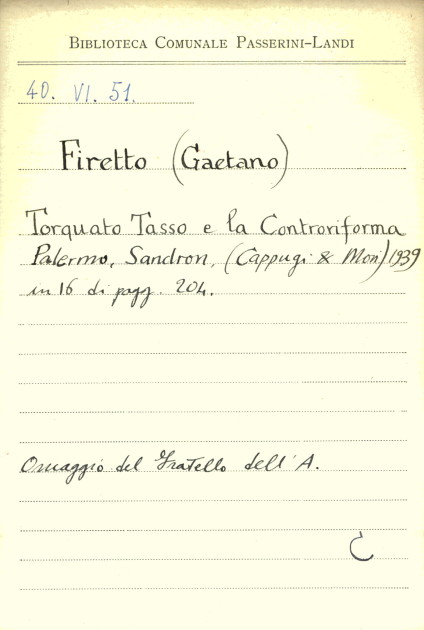 BIBLIOTECA COMUNALE PASSERINI-LANDI
40. VI. 51.
Firetto (Gaetano)
Torquato Tasso e la Controriforma
Palermo, Sandron, (Cappugi & Mori) 1939
in 16 di pagg. 204.
Omaggio del Fratello dell'A.
C